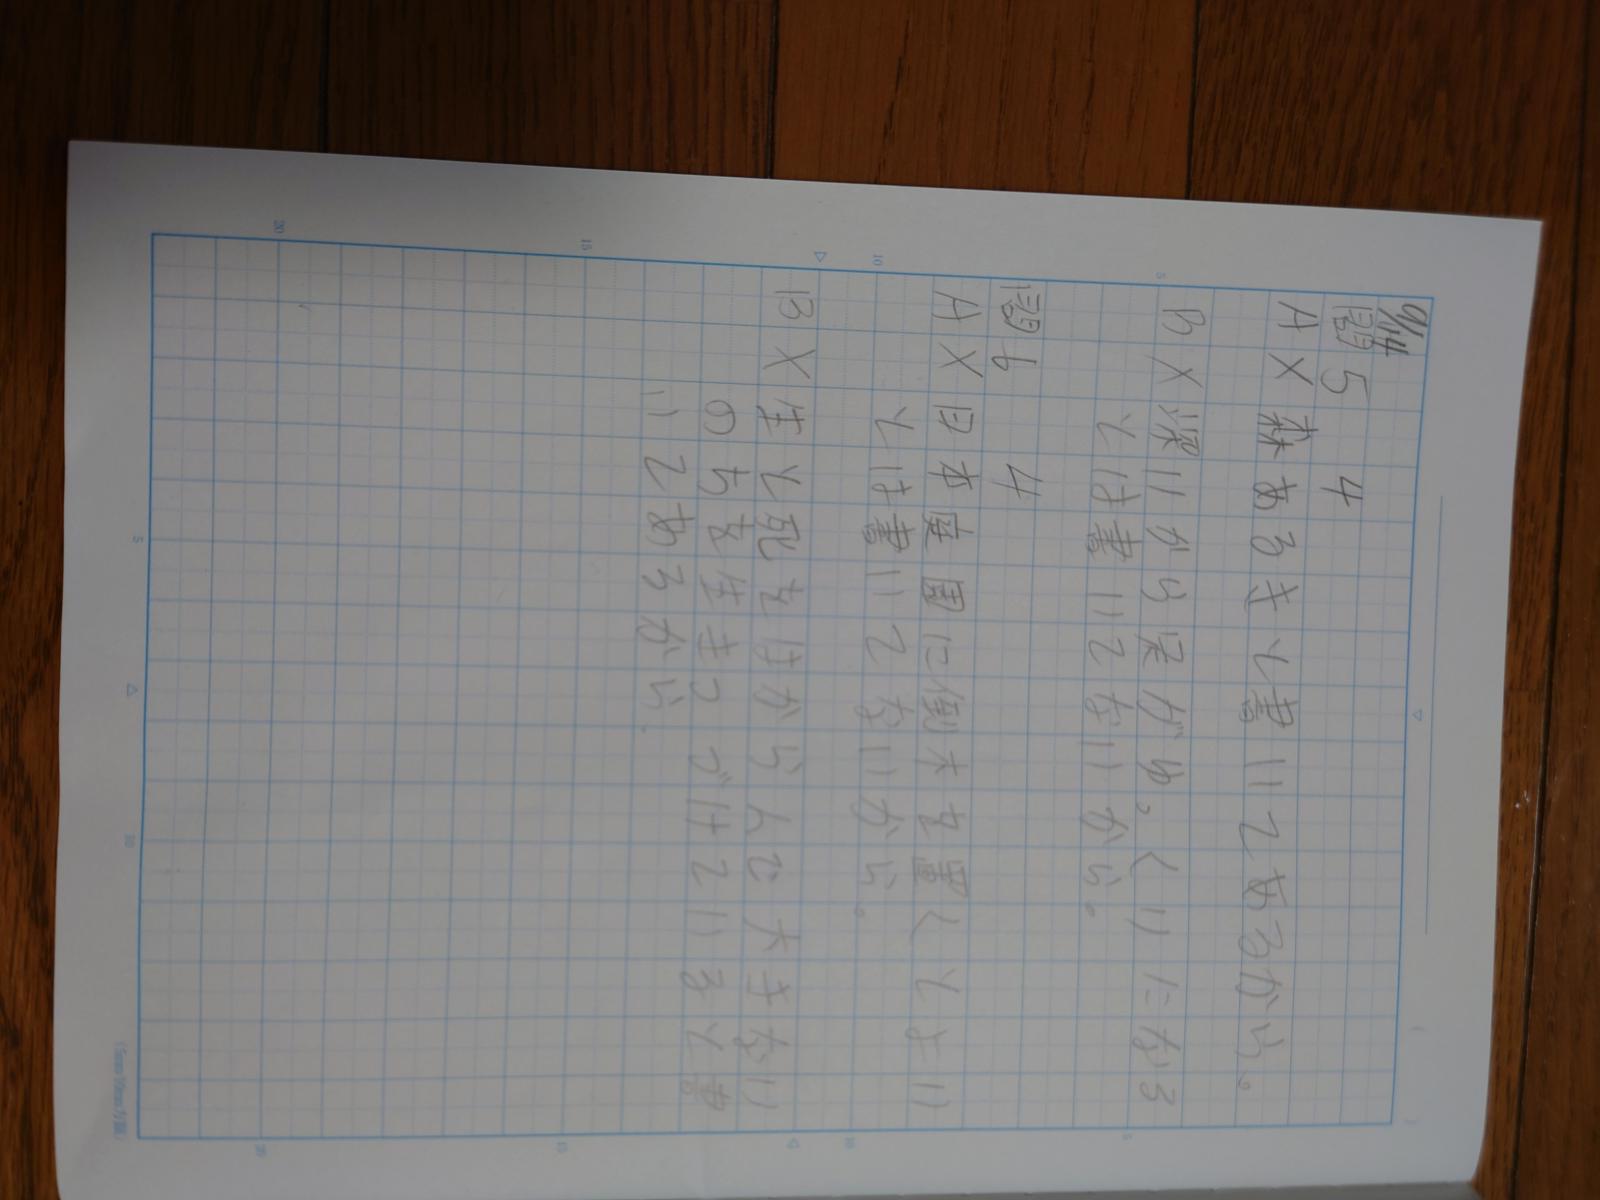 9/14
問5 4
A X 森あるきと書いてあるから。
B X 深いから がゆっくりになる
とは書いてないから。
問6 4
A X 日本庭園に倒木を置くとよい
とは書いてないから。
B X 生と死をはからんで大きない
のちを生きつづけていると書
いてあるから.
5
10
15
20
5
10
5
10
15
20